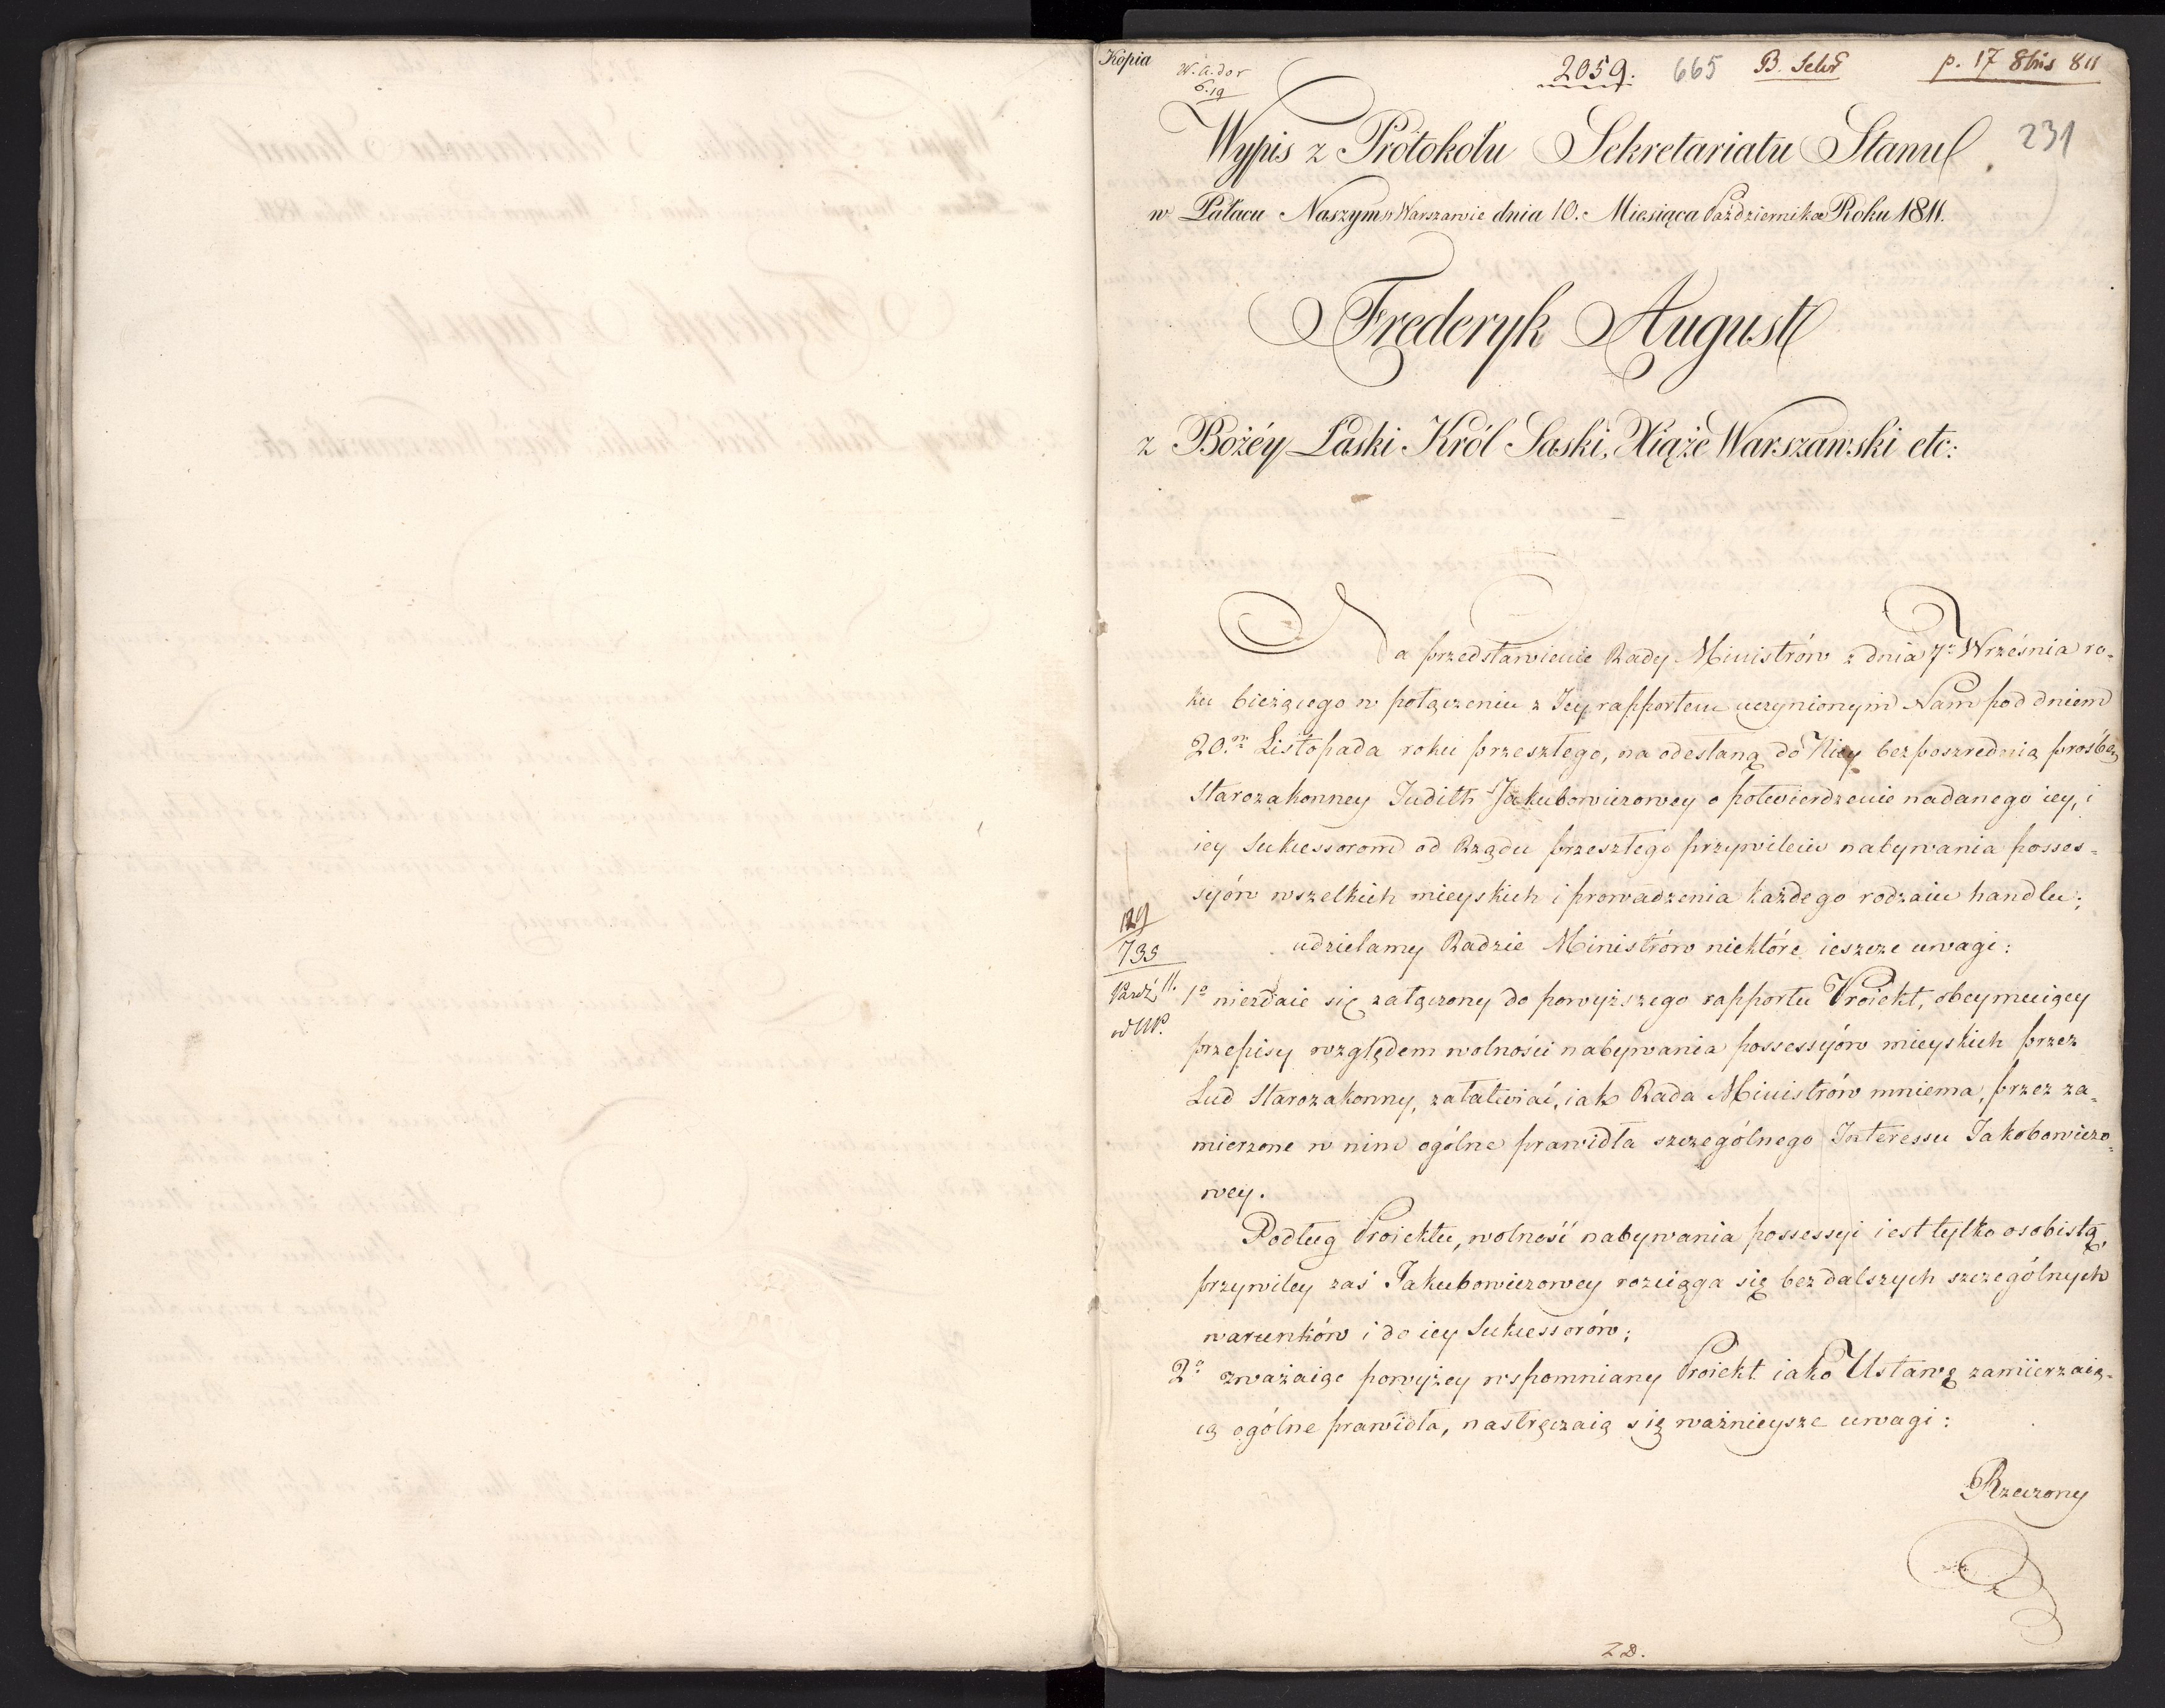 Kopia
2059. 665 p. 17 8bris 811
231
Wypis z Protokołu Sekretariatu Stanu
w Pałacu Naszym w Warszawie dnia 10. Miesiąca Października Roku 1811.
Frederyk August
z Bożéy Łaski Król Saski, Xiąże Warszawski etc:
Na przedstawienie Rady Ministrów z dnia 7º Września ro-
ku bieżącego w połączeniu z Jey rapportem uczynionym Nam pod dniem
20.º Listopada roku przeszłego, na odesłaną do Niey bezposzrednią prośbę
Starozakonney Judith Jakubowiczowey o potwierdzenie nadanego iey, i
iey Sukcessorom od Rządu przeszłego przywileiu nabywania posses-
syów wszelkich mieyskich i prowadzenia każdego rodzaiu handlu;
udzielamy Radzie Ministrów niektóre ieszcze uwagi:
129
735
Paźdź 11.
1º niezdaie się załączony do powyższego rapportu Proiekt, obeymuiący
przepisy względem wolności nabywania possessyów mieyskich przez
Lud Starozakonny, załatwiać, iak Rada Ministrów mniema, przez za-
mierzone w nim ogólne prawidła szczególnego Interessu Jakobowiczo-
wey.
Podług Proiektu, wolność nabywania possessyi iest tylko osobistą,
przywiley zaś Jakubowiczowey rozciąga się bez dalszych szczególnych
warunków i do iey Sukcessorów;
2º zważaiąc powyżey wspomniany Proiekt iako Ustawę zamierzaią-
cą ogólne prawidła, nastręczaią się ważnieysze uwagi:
Rzeczony